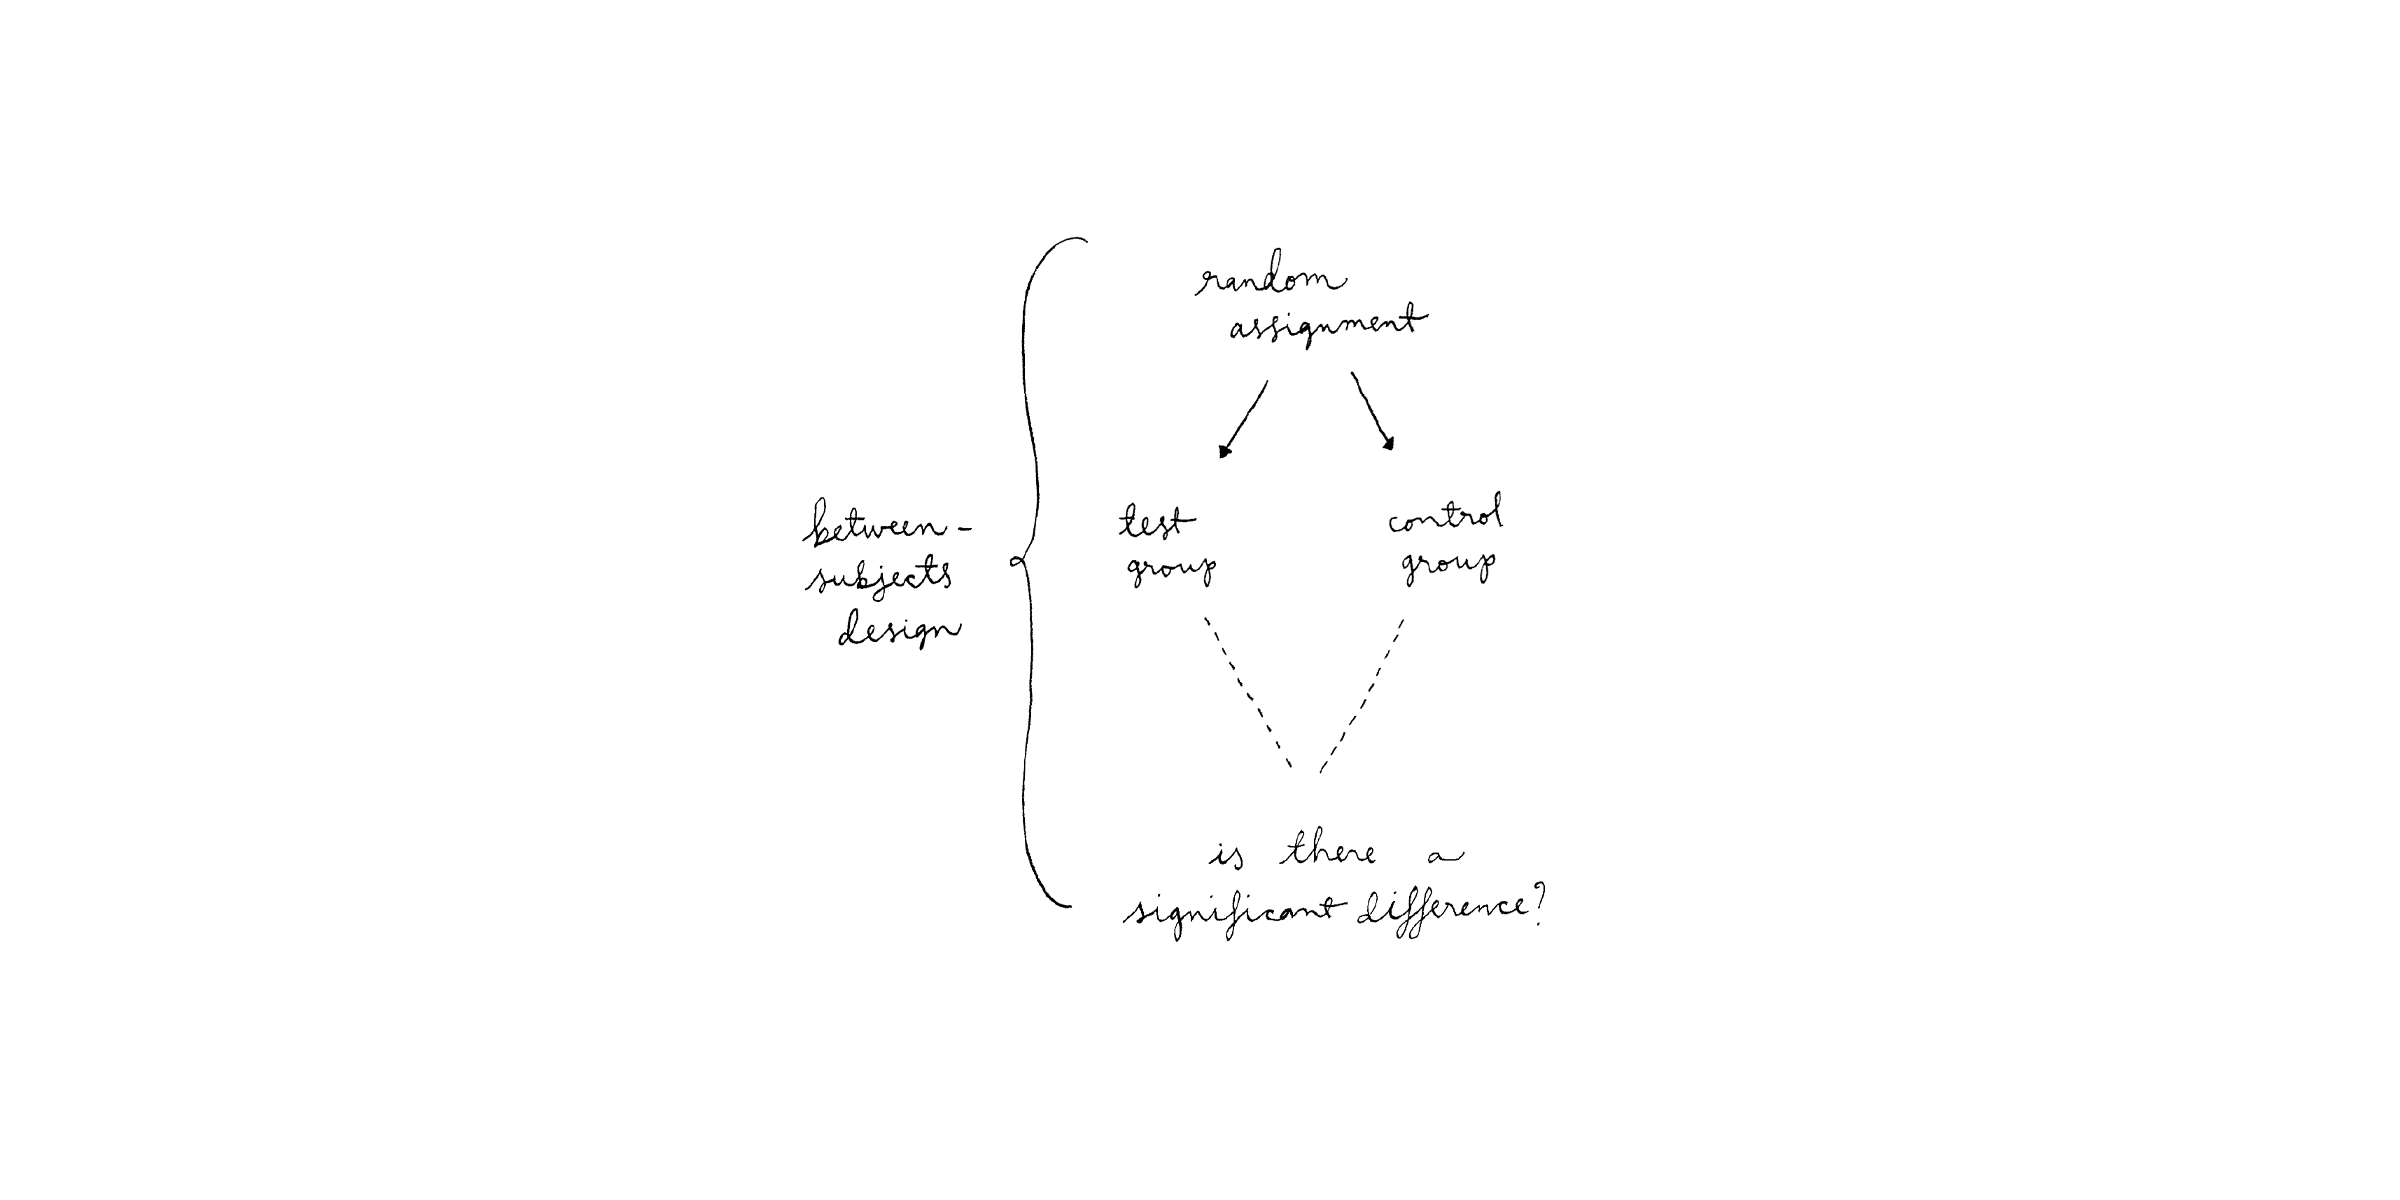 random
assignment
between-
subjects
design
test
group
control
group
is there a
significant difference?